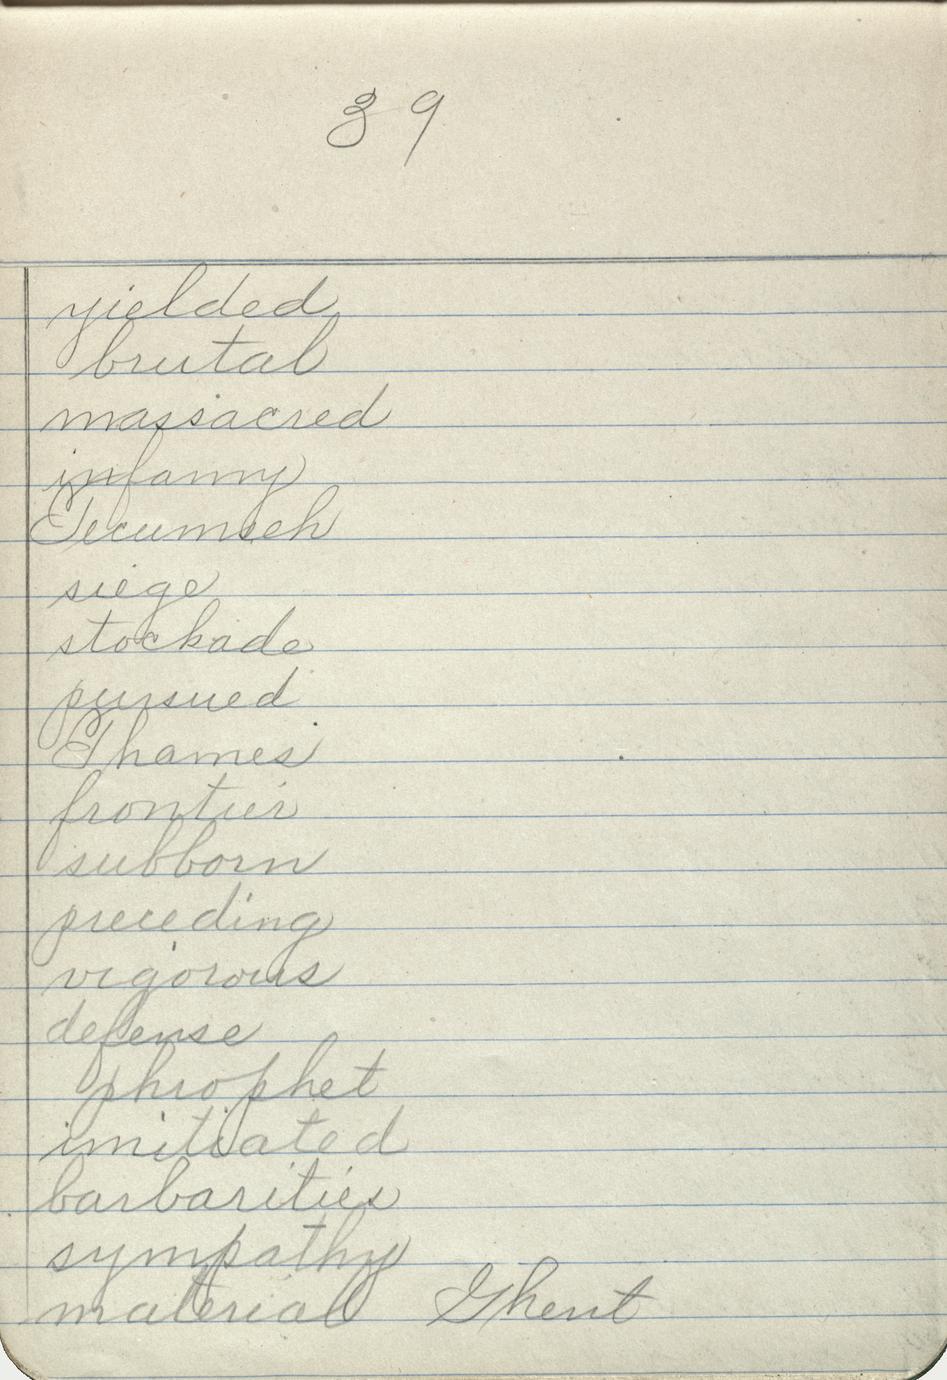 39
yielded
brutal
massacred
infamy
Tecumseh
siege
stockade
pursued
Thames
frontier
subborn
preceding
vigorous
defense
phrophet
imitiated
barbarities
sympathy
material Ghent